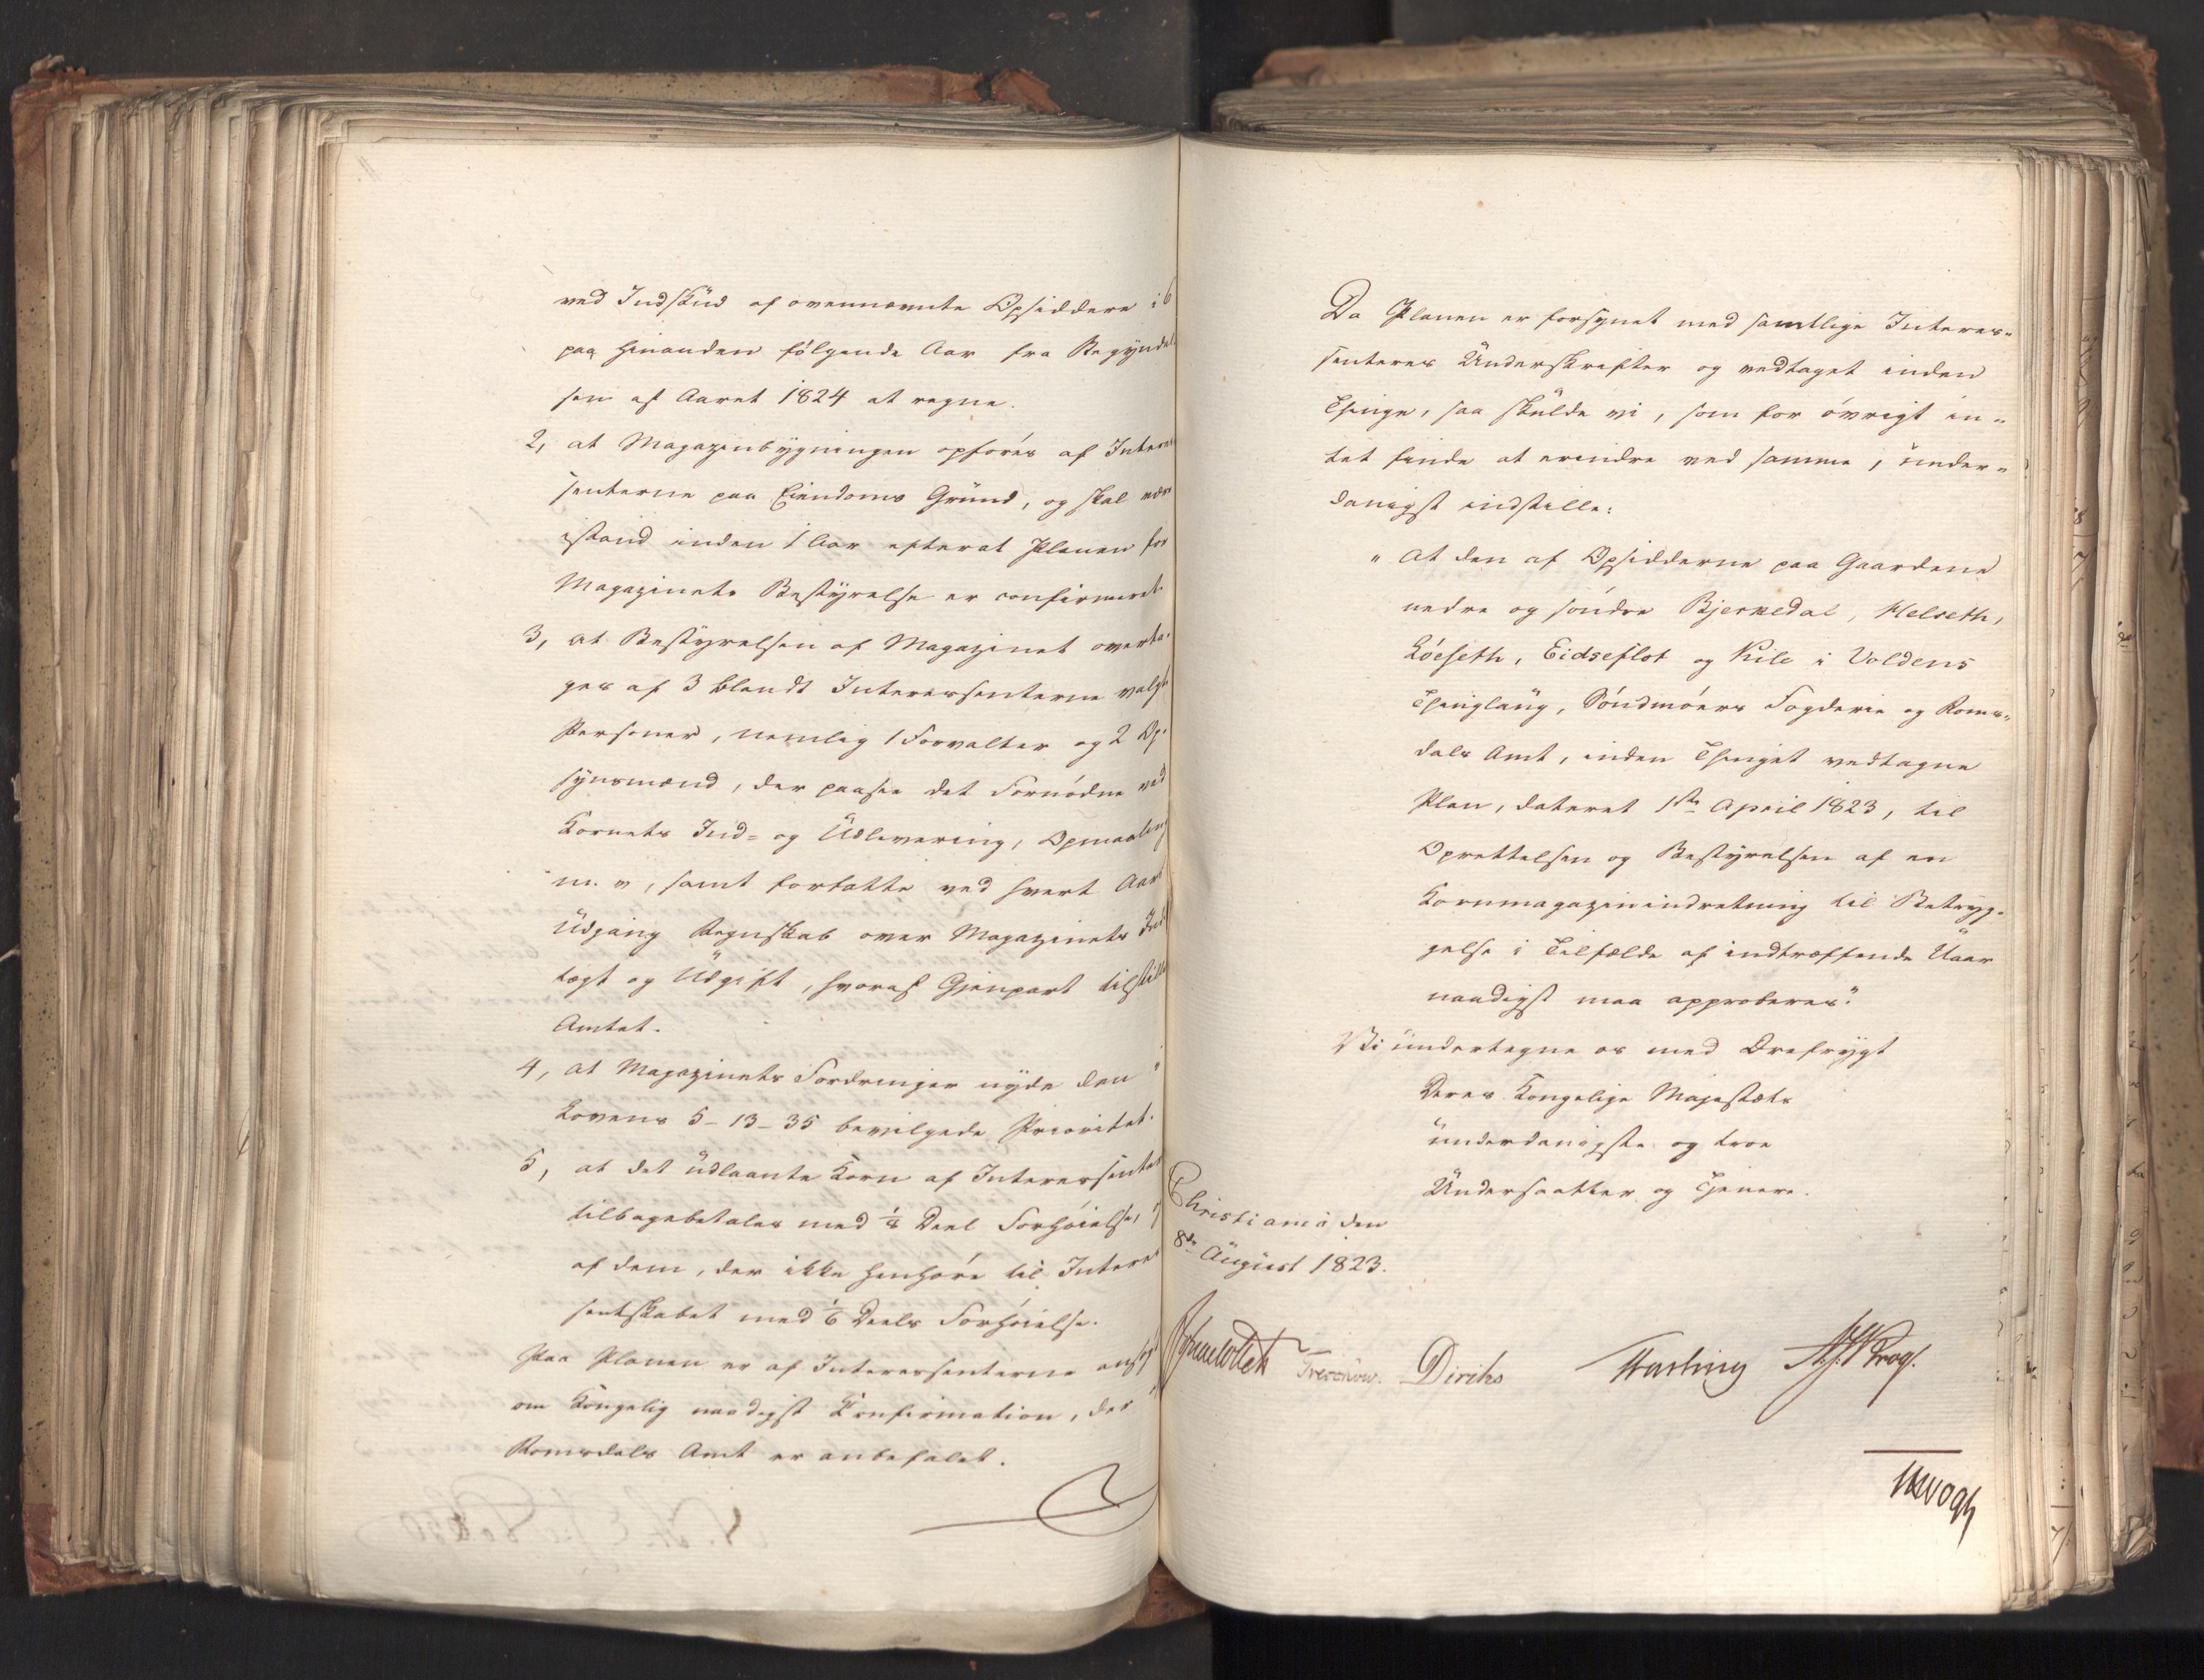 ved Indskud af ovennævnte Opsiddere i 6
paa hinanden følgende Aar fra Begyndel
sen af Aaret 1824 at regne.
2, at Magazinbygningen opføres af Interes
senterne paa Eiendoms Grund, og skal være
istand inden 1 Aar efterat Planen for
Magazinets Bestyrelse er confirmeret.
3, at Bestyrelsen af Magazinet overta-
ges af 3 blandt Interessenterne valgte
Personer, nemlig 1 Forvalter og 2 Op-
synsmænd, der paasee det Fornødne ved
Kornets Ind- og Udlevering, Opmaaling
m. v, samt forfatte ved hvert Aars
Udgang Regnskab over Magazinets Ind
tægt og Udgift, hvoraf Gjenpart tilstilles
Amtet.
4, at Magazinets Fordringer nyde den i
Lovens 5-13-35 bevilgede Prioritet.
5, at det udlaante Korn af Interessenter
tilbagebetales med 1/8 Deel Forhøielse, og
af dem, der ikke henhøre til Interes
sentskabet med 1/6 Deels Forhøielse.
Paa Planen er af Interessenterne ansøgt
om Kongelig naadigst Confirmation, der i
Romsdals Amt er anbefalet.
Da Planen er forsynet med samtlige Interes-
senteres Underskrifter og vedtaget inden
Thinge, saa skulde vi, som for øvrigt in-
tet finde at erindre ved samme, under-
danigst indstille:
"At den af Opsidderne paa Gaardene
nedre og søndre Bjerkedal, Helseth,
Løeseth, Eidseflot og Kile i Voldens
Thinglaug, Søndmøers Fogderie og Roms-
dals Amt, inden Thinget vedtagne
Plan, dateret 1ste April 1823, til
Oprettelsen og Bestyrelsen af en
Kornmagazinindretning til Betryg-
gelse i Tilfælde af indtræffende Uaar
naadigst maa approberes."
Vi undertegne os med Ærefrygt
Deres Kongelige Majestæts
underdanigste og troe
Undersaatter og Tjenere.
Christiania den
8de August 1823.
Treschow. Diriks Krog.
Vogt